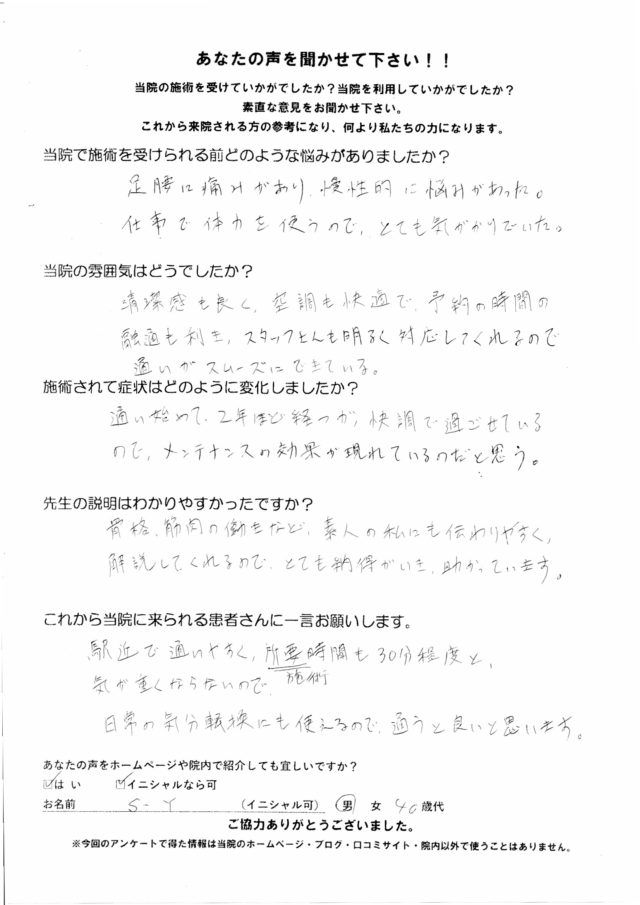 あなたの声を聞かせて下さい！！
当院の施術を受けていかがでしたか？当院を利用していかがでしたか？
素直な意見をお聞かせ下さい。
これから来院される方の参考になり、何より私たちの力になります。
当院で施術を受けられる前どのような悩みがありましたか？
足腰に痛みがあり、慢性的に悩みがあった。
仕事で体力を使うので、とても気がかりでいた。
当院の雰囲気はどうでしたか？
清潔感も良く、空調も快適で、予約の時間の
融通も利き、スタッフさんも明るく対応してくれるので
通いがスムーズにできている。
施術されて症状はどのように変化しましたか？
通い始めて、2年ほど経つが、快調で過ごせている
ので、メンテナンスの効果が現れているのだと思う。
先生の説明はわかりやすかったですか？
骨格、筋肉の働きなど、素人の私にも伝わりやすく、
解説してくれるので、とても納得がいき、助かっています。
これから当院に来られる患者さんに一言お願いします。
駅近で通いやすく、所要時間も30分程度と、
施術
気が重くならないので、
日常の気分転換にも使えるので、通うと良いと思います。
あなたの声をホームページや院内で紹介しても宜しいですか？
☑はい ☑イニシャルなら可
お名前 S-Y （イニシャル可） 男 女 40歳代
ご協力ありがとうございました。
※今回のアンケートで得た情報は当院のホームページ・ブログ・口コミサイト・院内以外で使うことはありません。